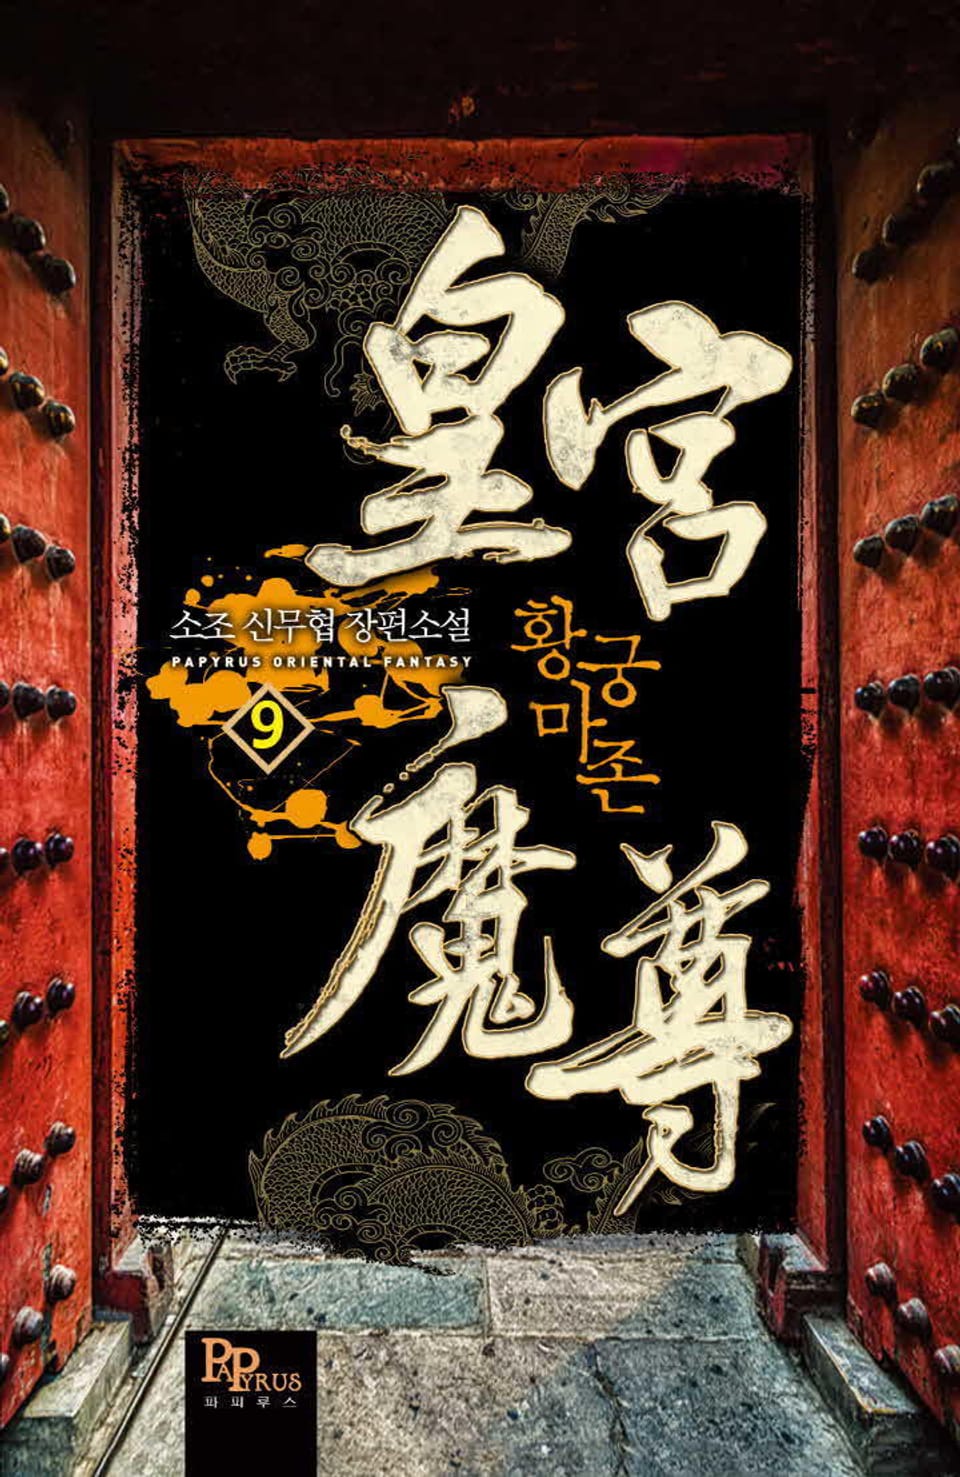 皇宮
소조 신무협 장편소설
PAPYRUS ORIENTAL FANTASY
9
황궁
마존
魔尊
PAPYRUS
파피루스